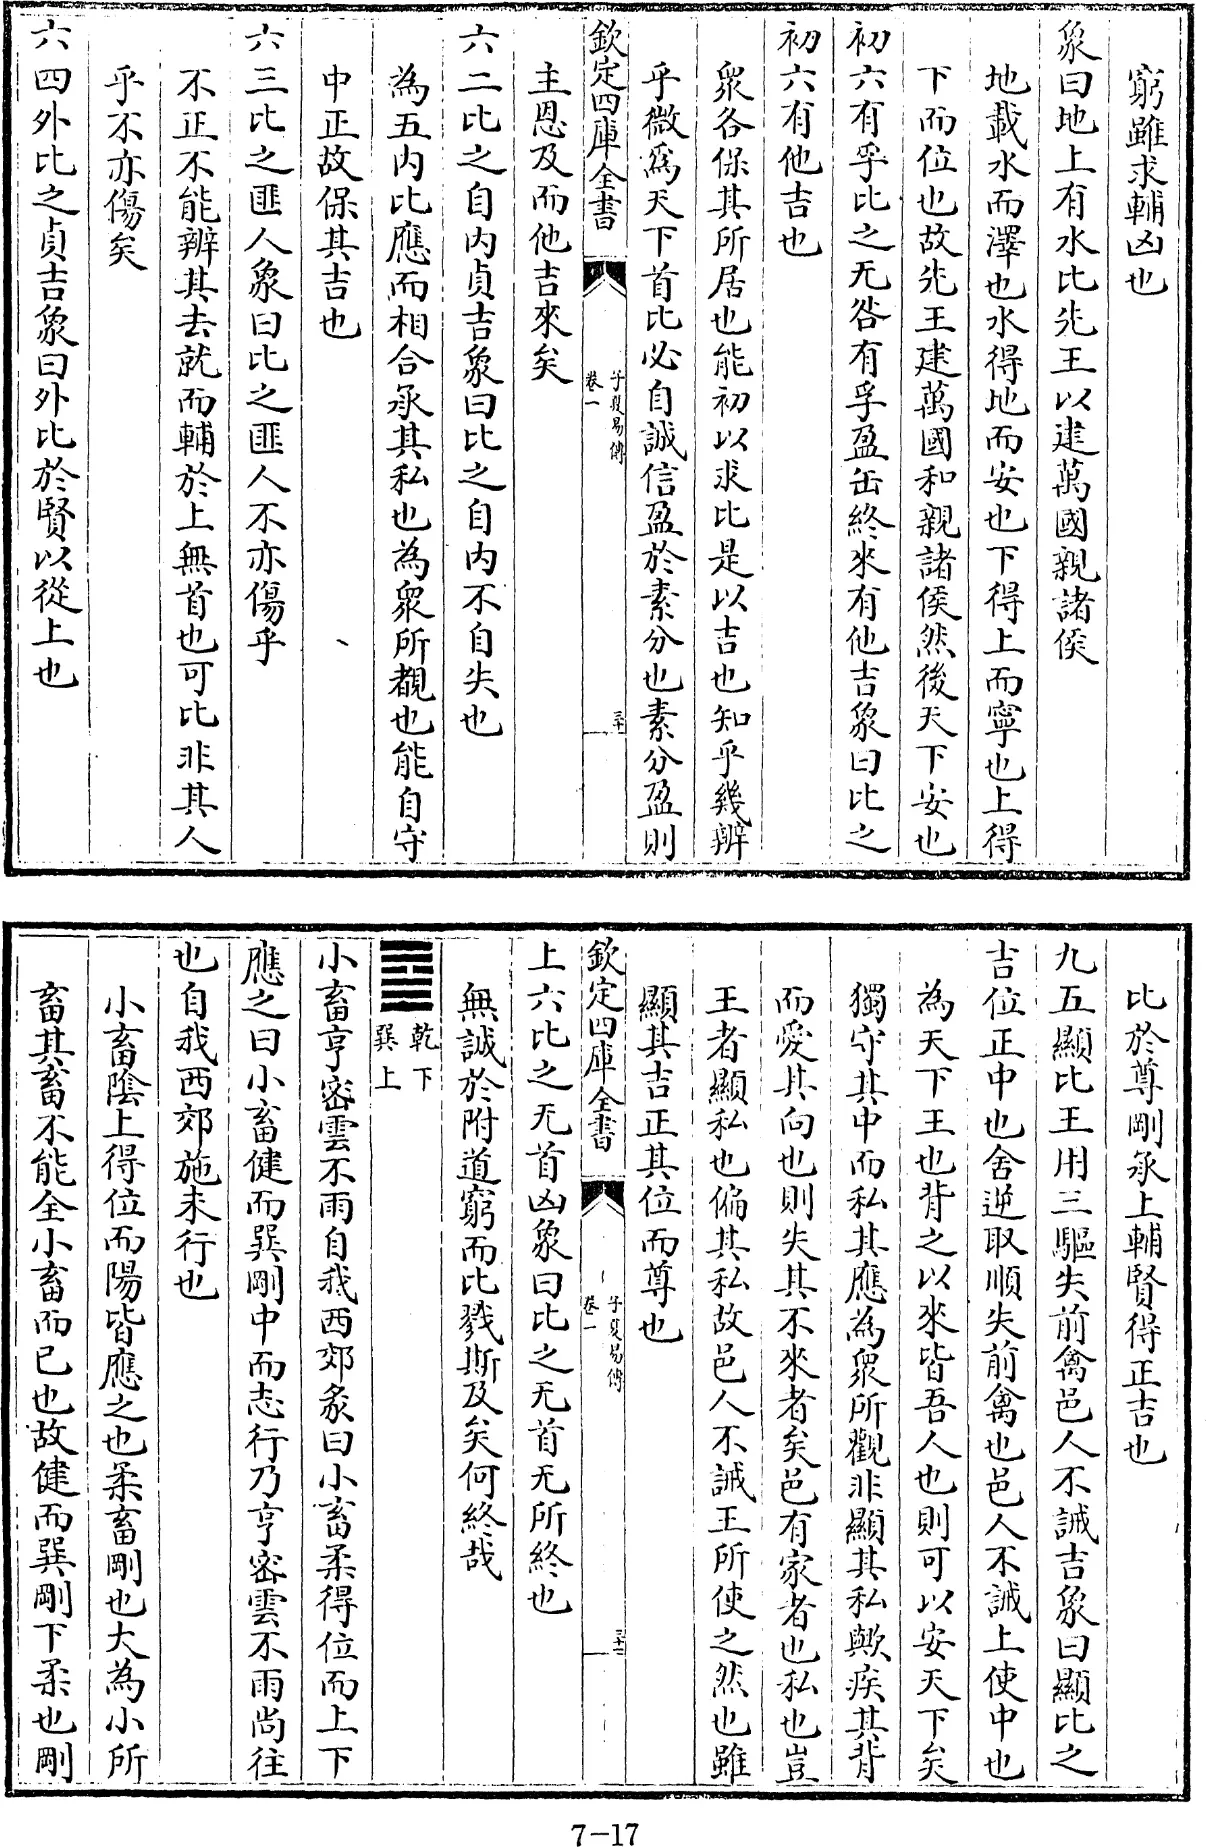 窮雖求輔凶也
象曰地上有水比先王以建萬國親諸侯
地載水而澤也水得地而安也下得上而寧也上得
下而位也故先王建萬國和親諸侯然後天下安也
初六有孚比之无咎有孚盈缶終來有他吉象曰比之
初六有他吉也
衆各保其所居也能初以求比是以吉也知乎幾辨
乎微為天下首比必自誠信盈於素分也素分盈則
欽定四庫全書
子夏易傳
卷一
三十
主恩及而他吉來矣
六二比之自内貞吉象曰比之自内不自失也
為五内比應而相合承其私也為衆所覩也能自守
中正故保其吉也
六三比之匪人象曰比之匪人不亦傷乎
不正不能辨其去就而輔於上無首也可比非其人
乎不亦傷矣
六四外比之貞吉象曰外比於賢以從上也
比於尊剛承上輔賢得正吉也
九五顯比王用三驅失前禽邑人不誡吉象曰顯比之
吉位正中也舍逆取順失前禽也邑人不誡上使中也
為天下王也背之以來皆吾人也則可以安天下矣
獨守其中而私其應為衆所觀非顯其私歟疾其背
而愛其向也則失其不來者矣邑有家者也私也豈
王者顯私也偏其私故邑人不誡王所使之然也雖
顯其吉正其位而尊也
欽定四庫全書
子夏易傳
卷一
三十一
上六比之无首凶象曰比之无首无所終也
無誠於附道窮而比戮斯及矣何終哉
乾下
巽上
小畜亨密雲不雨自我西郊彖曰小畜柔得位而上下
應之曰小畜健而巽剛中而志行乃亨密雲不雨尚往
也自我西郊施未行也
小畜陰上得位而陽皆應之也柔畜剛也大為小所
畜其畜不能全小畜而已也故健而巽剛下柔也剛
7-17